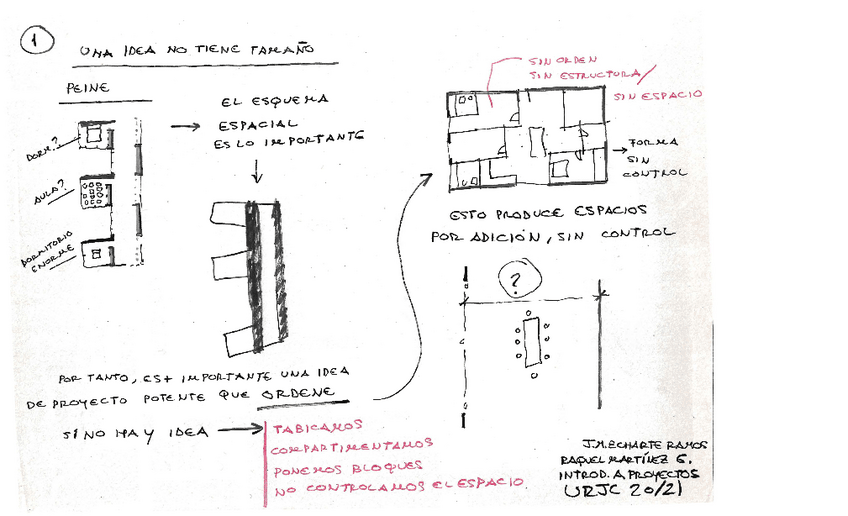 1
UNA IDEA NO TIENE TAMAÑO
PEINE
DORM.?
AULA?
DORMITORIO
ENORME
EL ESQUEMA
ESPACIAL
ES LO IMPORTANTE
POR TANTO, ES + IMPORTANTE UNA IDEA
DE PROYECTO POTENTE QUE ORDENE
SI NO HAY IDEA
TABICAMOS
COMPARTIMENTAMOS
PONEMOS BLOQUES
NO CONTROLAMOS EL ESPACIO
SIN ORDEN
SIN ESTRUCTURA/
SIN ESPACIO
FORMA
SIN
CONTROL
ESTO PRODUCE ESPACIOS
POR ADICIÓN, SIN CONTROL
?
J.M. ECHARTE RAMOS
RAQUEL MARTÍNEZ G.
INTROD. A PROYECTOS
URJC 20/21